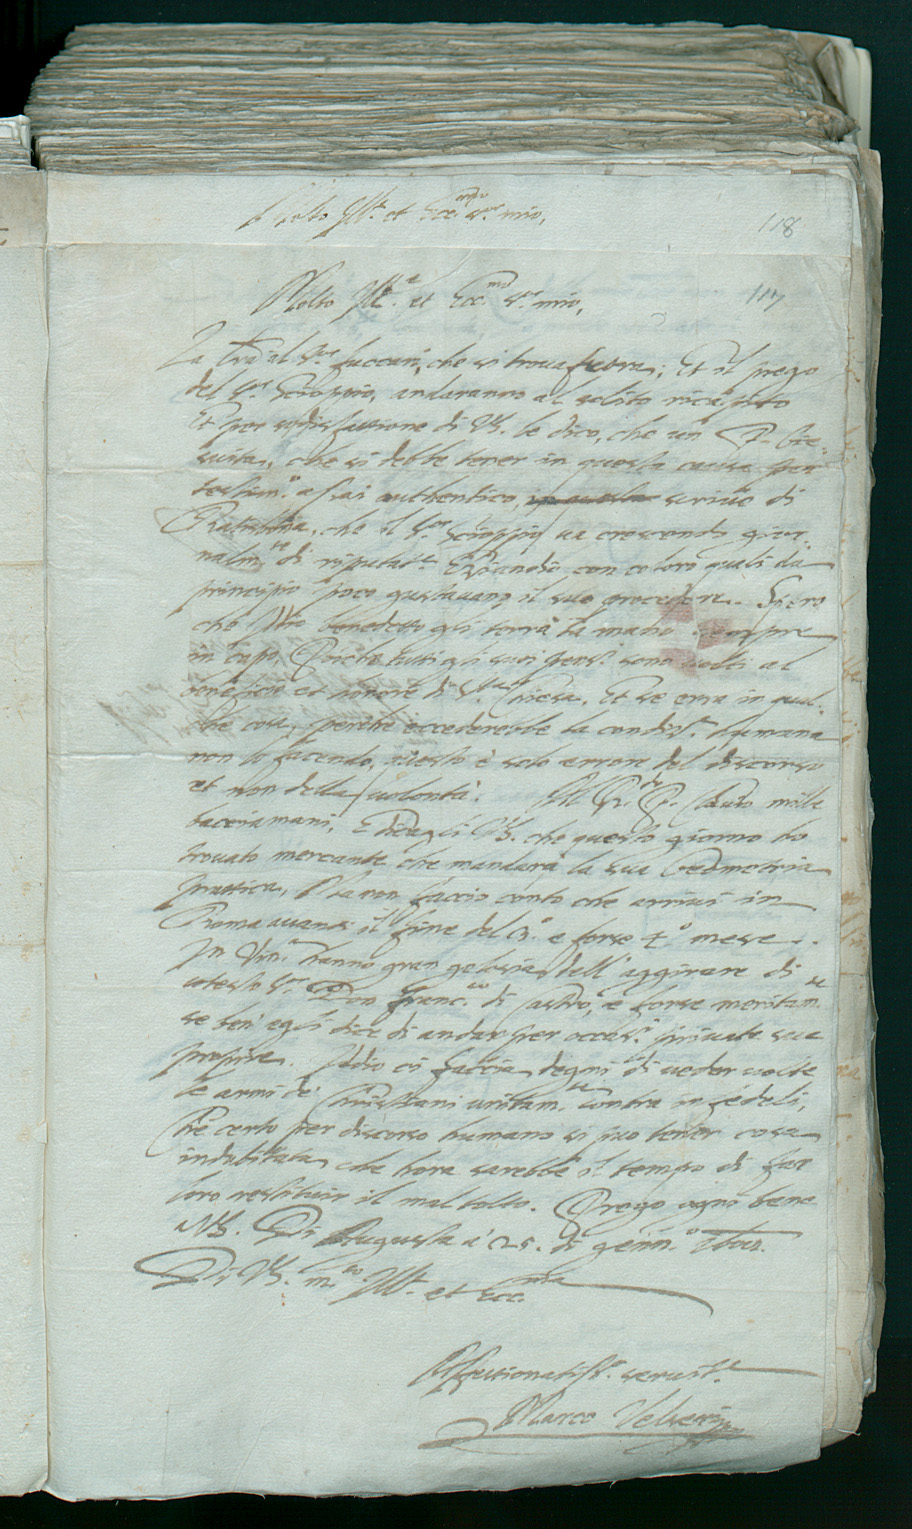 Molto Ill.e et Ecc.mo S.r mio,
118
Molto Ill.re et Ecc.mo S.r mio,
117
La tra al S.or che si trova fuora, Et il prego
del S.r Scioppio, andaranno al solito ricapito
Et per sodisfattione di VS. le dico, che un P. Gie-
suita, che si debbe tener in questa causa per
testim.o assai authentico, in questa scrive di
Ratisbona, che il S.or Scioppio va crescendo gior-
nalm.te di riputat.e Etiandio con coloro quali da
principio poco gustavano il suo procedere. Spero
che Iddio benedetto gli terrà la mano sempre
in capo, Poiche tutti gli suoi pens.i sono volti al
beneficio et honore di S.ta Chiesa. Et se erra in qual-
che cosa, perche eccederebbe la condit.e humana
non lo facendo, questo è solo errore del discorso
et non della volontà. Al R.do P. Clavio mille
bacciamani, E dicagli VS. che questo giorno ho
trovato mercante che mandarà la sua Geometria
prattica, Ma non faccio conto che arrivi in
Roma avanti il fine del 3.o e forse 4.o mese.
In Ven.a hanno gran gelosia dell'aggirare di
cotesto S.r Don Franc.co di Castro, e forse meritam.te
se ben egli dice di andar per occas.i private sue
proprie. Iddio ci faccia degni di veder volte
le armi de' Christiani unitam.te contra infedeli,
Che certo per discorso humano si puo tener cosa
indubitata che hora sarebbe il tempo di far
loro restituir il mal tolto. Prego ogni bene
a VS. Di Augusta a' 25. di genn.o
Di VS. m.to Ill.e et Ecc.ma
Affettionatiss.o servit.e
Marco Velseri